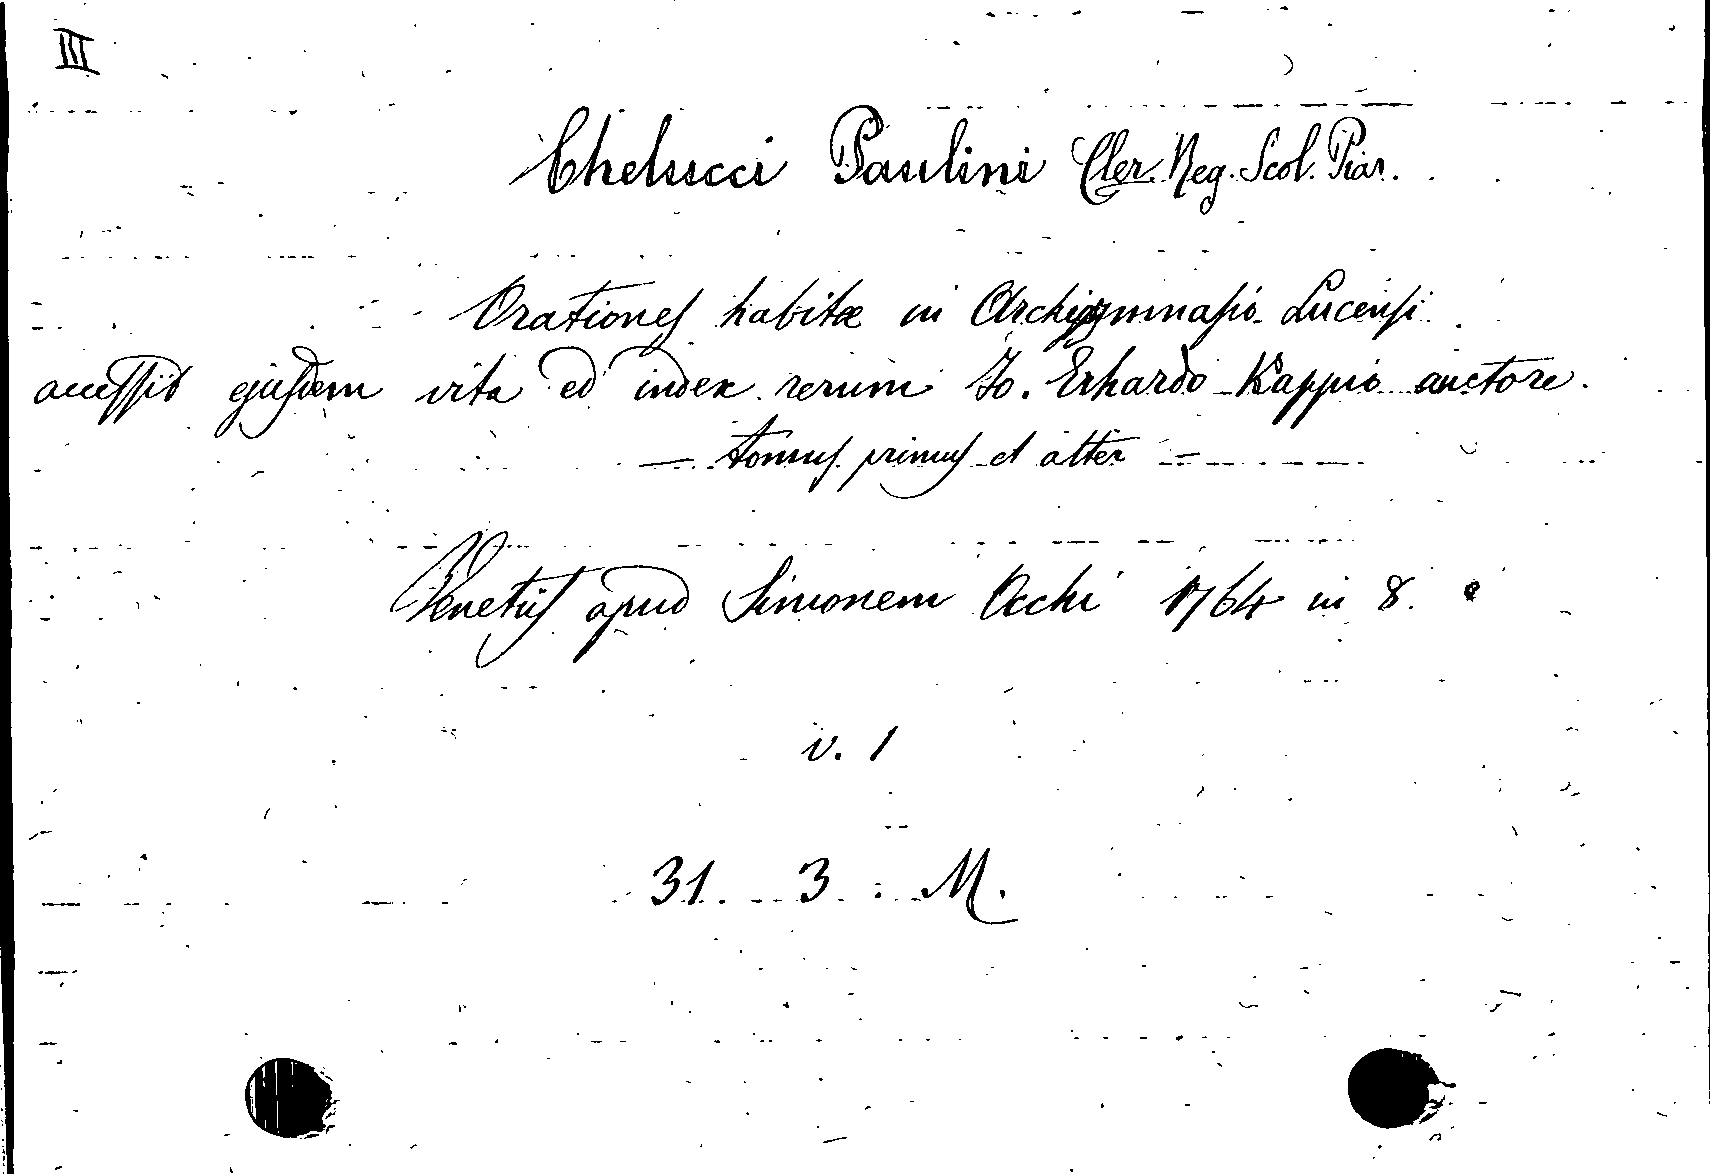 III
Chelucci Paulini Cler. Reg. Scol. Piar.
Orationes habitæ in Archigymnasio Lucensi
accessit ejusdem vita ed index rerum Jo. Erhardo Kappio auctore.
— tomus primus et alter —
Venetiis apud Simonem Occhi 1764 in 8.
v. 1
31. 3. M.